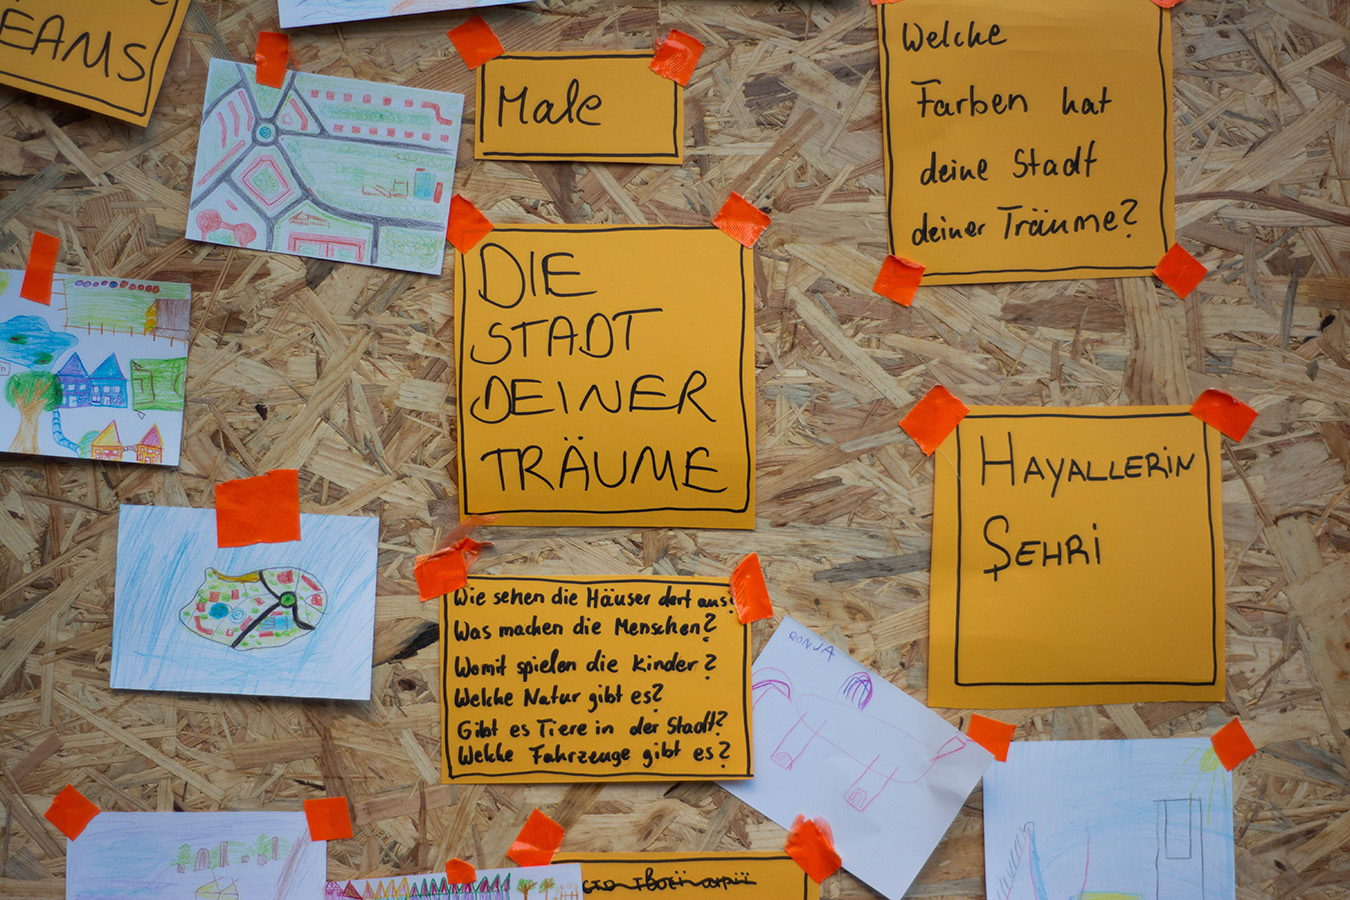 EAMS
Male
Welche
Farben hat
deine Stadt
deiner Träume?
DIE
STADT
DEINER
TRÄUME
HAYALLERIN
ŞEHRI
Wie sehen die Häuser dort aus?
Was machen die Menschen?
Womit spielen die Kinder?
Welche Natur gibt es?
Gibt es Tiere in der Stadt?
Welche Fahrzeuge gibt es?
RONJA